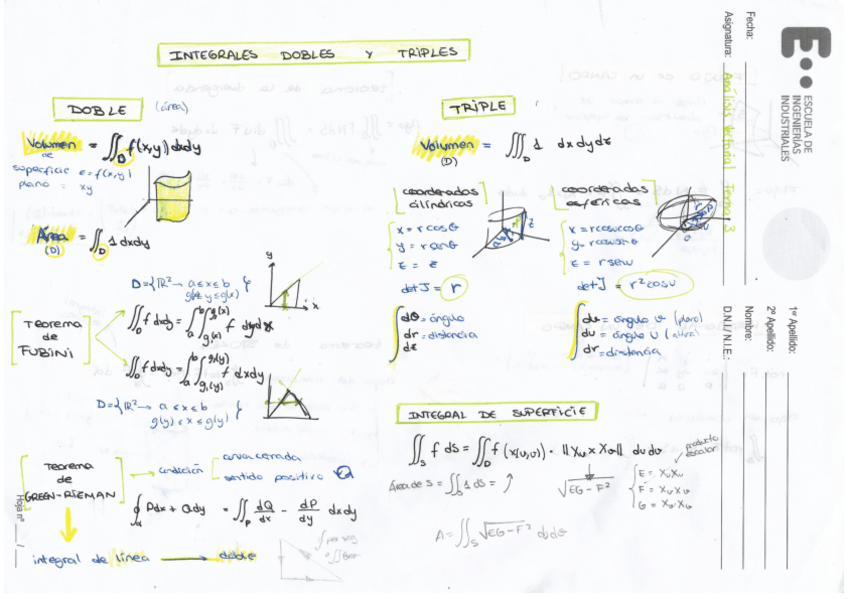 INTEGRALES DOBLES y TRIPLES
DOBLE (área)
Volumen = ∬_D f(x,y) dxdy
de
superficie z=f(x,y)
plano = xy
Área = ∬_D 1 dxdy
(D)
D={ℝ² → a≤x≤b
Teorema
de
FUBINI
∬_D f dxdy = ∫_a^b ∫ f dydx
∬_D f dxdy = ∫_a^b ∫ f dxdy
D={ℝ² → a≤x≤b
g(y)≤x≤g(y) }
y
x
Teorema
de
GREEN-RIEMAN
→ condición
curva cerrada
sentido positivo
∮ Pdx + Qdy = ∬ dQ/dx - dP/dy dxdy
integral de línea → doble
TRIPLE
Volumen = ∭_D 1 dxdydz
(D)
coordenadas
cilíndricas
x = r cosθ
z = z
det J = r
dθ = ángulo
dr = distancia
dz
coordenadas
esféricas
det J = r² cosu
dv = ángulo v (plano)
du = ángulo u
dr = distancia
INTEGRAL DE SUPERFICIE
∬_S f dS = ∬_D f(x(u,v)) · ||Xu x Xv|| dudv
producto
escalar
Área de S = ∬_S 1 dS =
√EG-F²
E = XuXu
F = XuXv
G = XvXv
A = ∬_S √EG-F²
Fecha:
Asignatura: Análisis Vectorial Tema 3
ESCUELA DE
INGENIERÍAS
INDUSTRIALES
1er Apellido:
2º Apellido:
Nombre:
D.N.I./N.I.E.:
Hoja nº